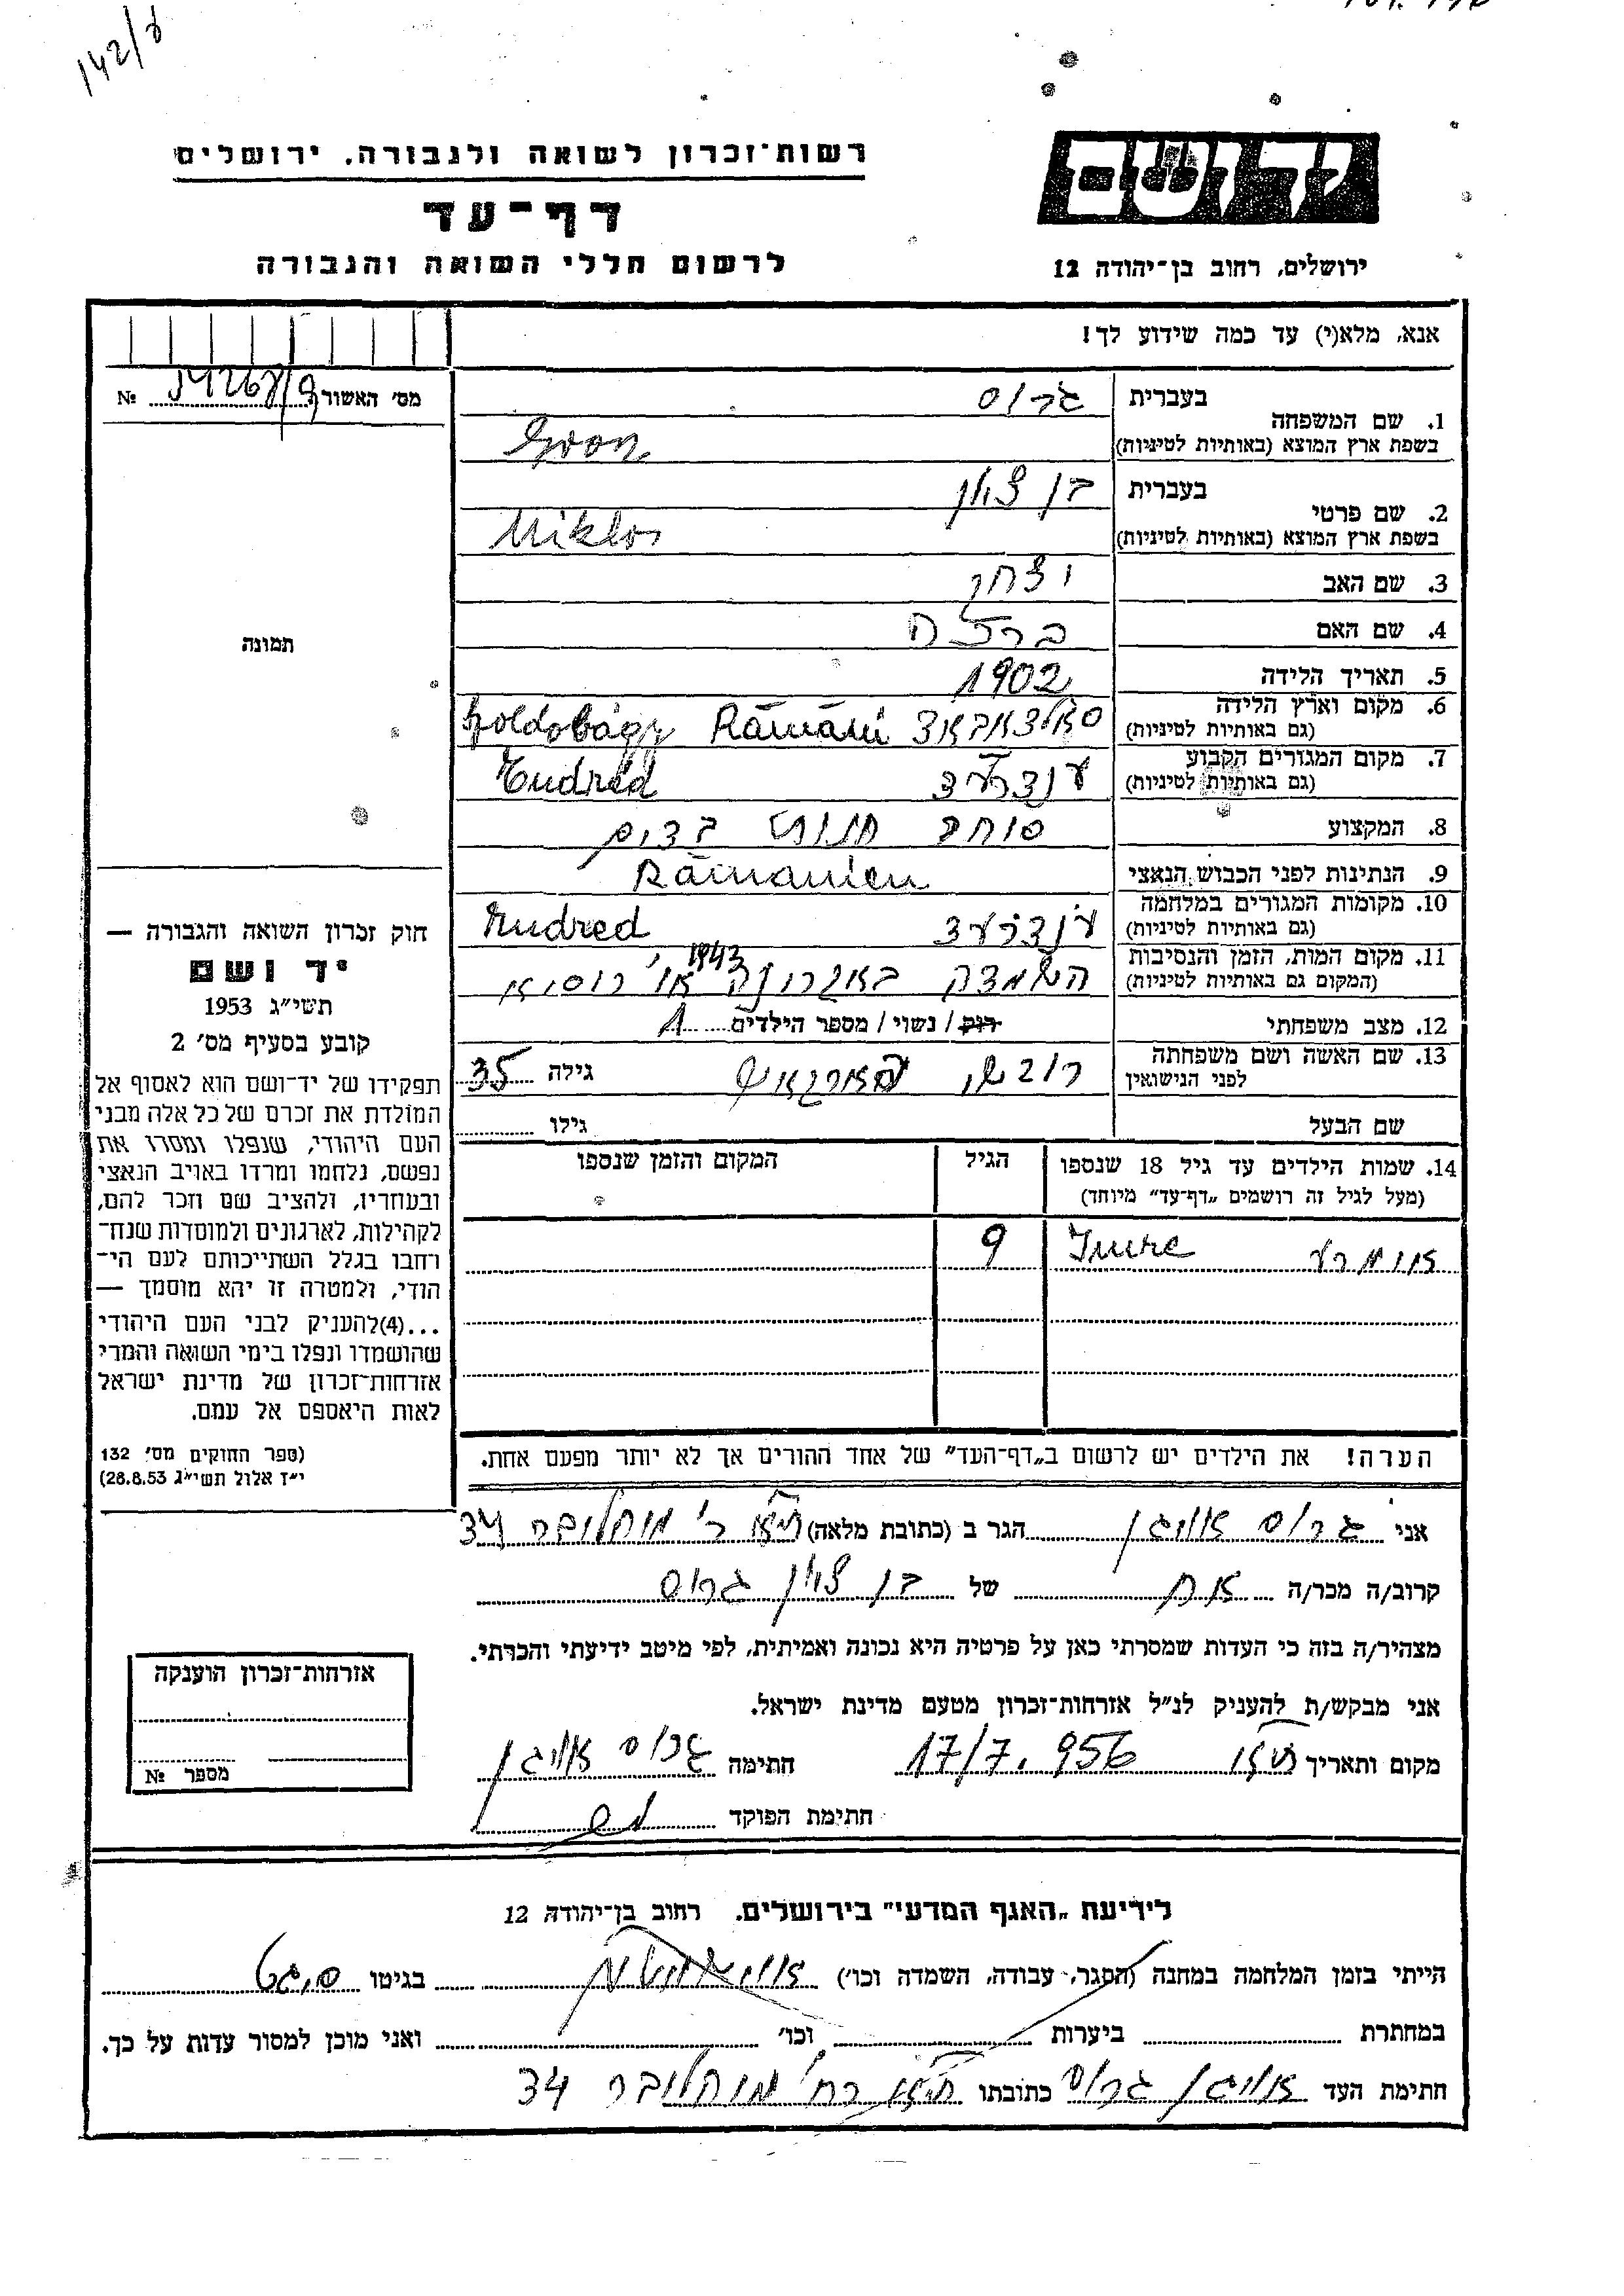 142/ד
רשות־זכרון לשואה ולגבורה, ירושלים
ידושם
דף־עד
לרשום חללי השואה והגבורה
ירושלים, רחוב בן־יהודה 12
אנא, מלא(י) עד כמה שידוע לך!
מס׳ האשור № 
1. שם המשפחה
בעברית גרוס
בשפת ארץ המוצא (באותיות לטיניות)
2. שם פרטי
בעברית בן ציון
בשפת ארץ המוצא (באותיות לטיניות) Miklos
3. שם האב יצחק
4. שם האם
5. תאריך הלידה 1902
6. מקום וארץ הלידה
(גם באותיות לטיניות)
7. מקום המגורים הקבוע
(גם באותיות לטיניות)
8. המקצוע סוחר חנות בדים
9. הנתינות לפני הכבוש הנאצי
10. מקומות המגורים במלחמה
(גם באותיות לטיניות)
11. מקום המות, הזמן והנסיבות 1943
(המקום גם באותיות לטיניות)
12. מצב משפחתי רוק / נשוי / מספר הילדים 1
13. שם האשה ושם משפחתה
לפני הנישואין
גילה 35
שם הבעל גילו
14. שמות הילדים עד גיל 18 שנספו
(מעל לגיל זה רושמים „דף־עד״ מיוחד)
הגיל
המקום והזמן שנספו
Imre 9
הערה! את הילדים יש לרשום ב„דף־העד״ של אחד ההורים אך לא יותר מפעם אחת.
תמונה
חוק זכרון השואה והגבורה —
יד ושם
תשי״ג 1953
קובע בסעיף מס׳ 2
תפקידו של יד־ושם הוא לאסוף אל
המולדת את זכרם של כל אלה מבני
העם היהודי, שנפלו ומסרו את
נפשם, נלחמו ומרדו באויב הנאצי
ובעוזריו, ולהציב שם וזכר להם,
לקהילות, לארגונים ולמוסדות שנח־
רחבו בגלל השתייכותם לעם הי־
הודי, ולמטרה זו יהא מוסמך —
...(4) להעניק לבני העם היהודי
שהושמדו ונפלו בימי השואה והמרי
אזרחות־זכרון של מדינת ישראל
לאות היאספם אל עמם.
(ספר החוקים מס׳ 132
י״ז אלול תשי״ג 28.8.53)
אני גרוס אויגן הגר ב (כתובת מלאה) ת״א ר׳ מוהליבר 34
קרוב/ה מכר/ה אח של בן ציון גרוס
מצהיר/ה בזה כי העדות שמסרתי כאן על פרטיה היא נכונה ואמיתית, לפי מיטב ידיעתי והכרתי.
אני מבקש/ת להעניק לנ״ל אזרחות־זכרון מטעם מדינת ישראל.
מקום ותאריך ת״א 17/7.956 חתימה גרוס אויגן
חתימת הפוקד
אזרחות־זכרון הוענקה
מספר №
לידיעת „האגף המדעי״ בירושלים, רחוב בן־יהודה 12
הייתי בזמן המלחמה במחנה (הסגר, עבודה, השמדה וכו׳) בגיטו סיגט
במחתרת ביערות וכו׳ ואני מוכן למסור עדות על כך.
חתימת העד אויגן גרוס כתובתו ת״א רח׳ מוהליבר 34